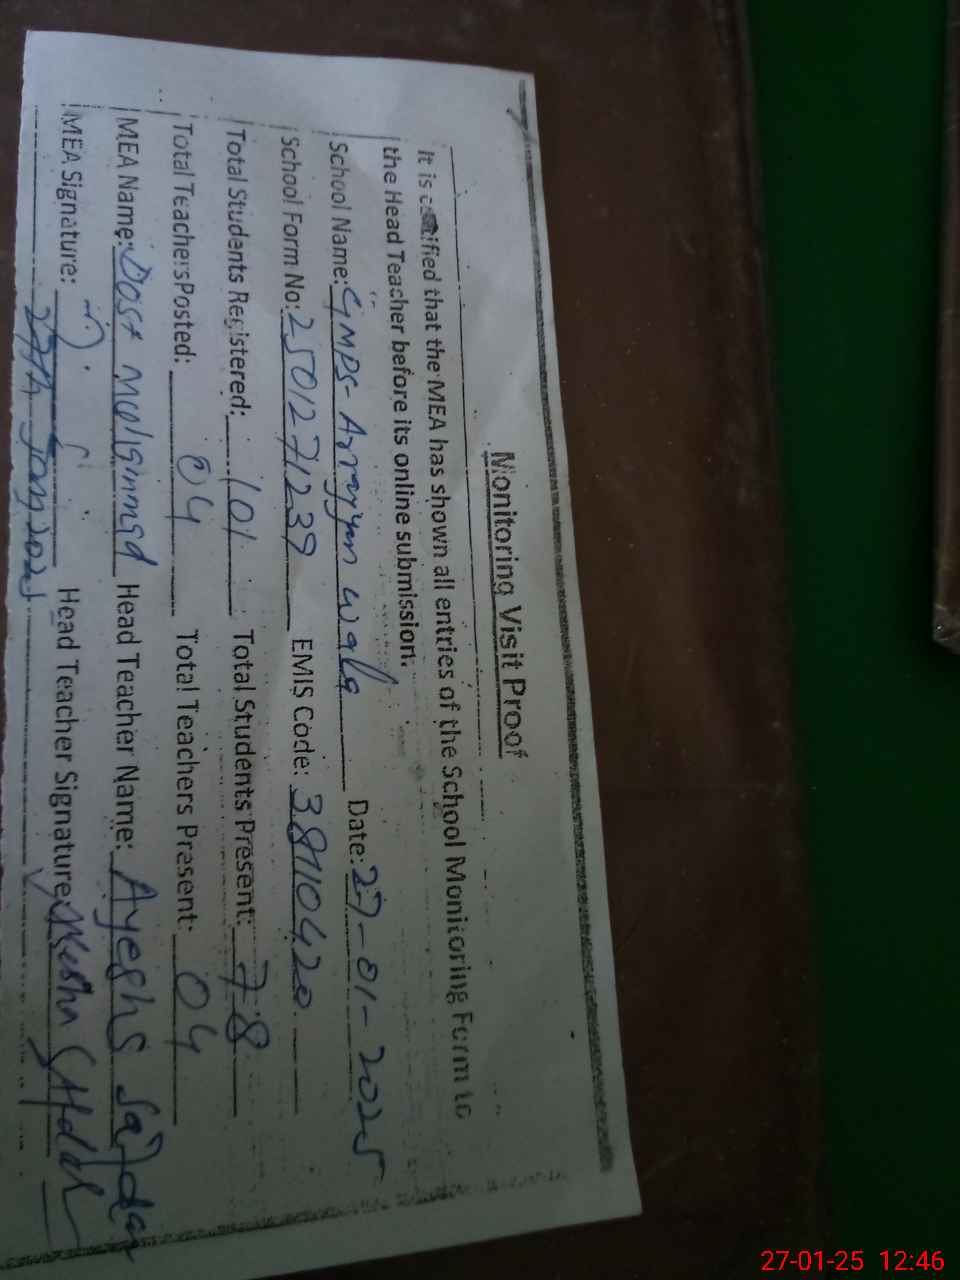 Monitoring Visit Proof
It is certified that the MEA has shown all entries of the School Monitoring Form to
the Head Teacher before its online submission.
School Name: GMPS- Arrayyan wala Date: 27-01-2025
School Form No: 2501271239 EMIS Code: 38110420
Total Students Registered: 101 Total Students Present: 78
Total Teachers Posted: 04 Total Teachers Present: 04
MEA Name: Dost Muhammad Head Teacher Name: Ayesha Safdar
MEA Signature: Head Teacher Signature: Ayesha Safdar
27th Jan, 2025
27-01-25 12:46